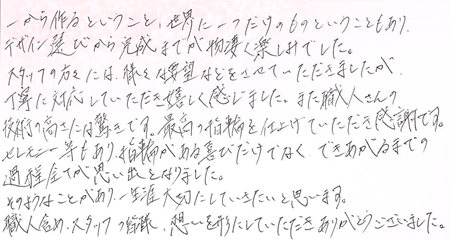 一から作るということと、世界に一つだけのものということもあり、
デザイン選びから完成までが物凄く楽しみでした。
スタッフの方々には、様々な要望などをさせていただきましたが、
丁寧に対応していただき嬉しく感じました。また職人さんの
技術の高さには驚きです。最高の指輪を仕上げていただき感謝です。
セレモニー等もあり、指輪がある喜びだけでなく、できあがるまでの
過程全てが思い出となりました。
そのようなことがあり、一生涯大切にしていきたいと思います。
職人含め、スタッフの皆様、想いを形にしていただきありがとうございました。